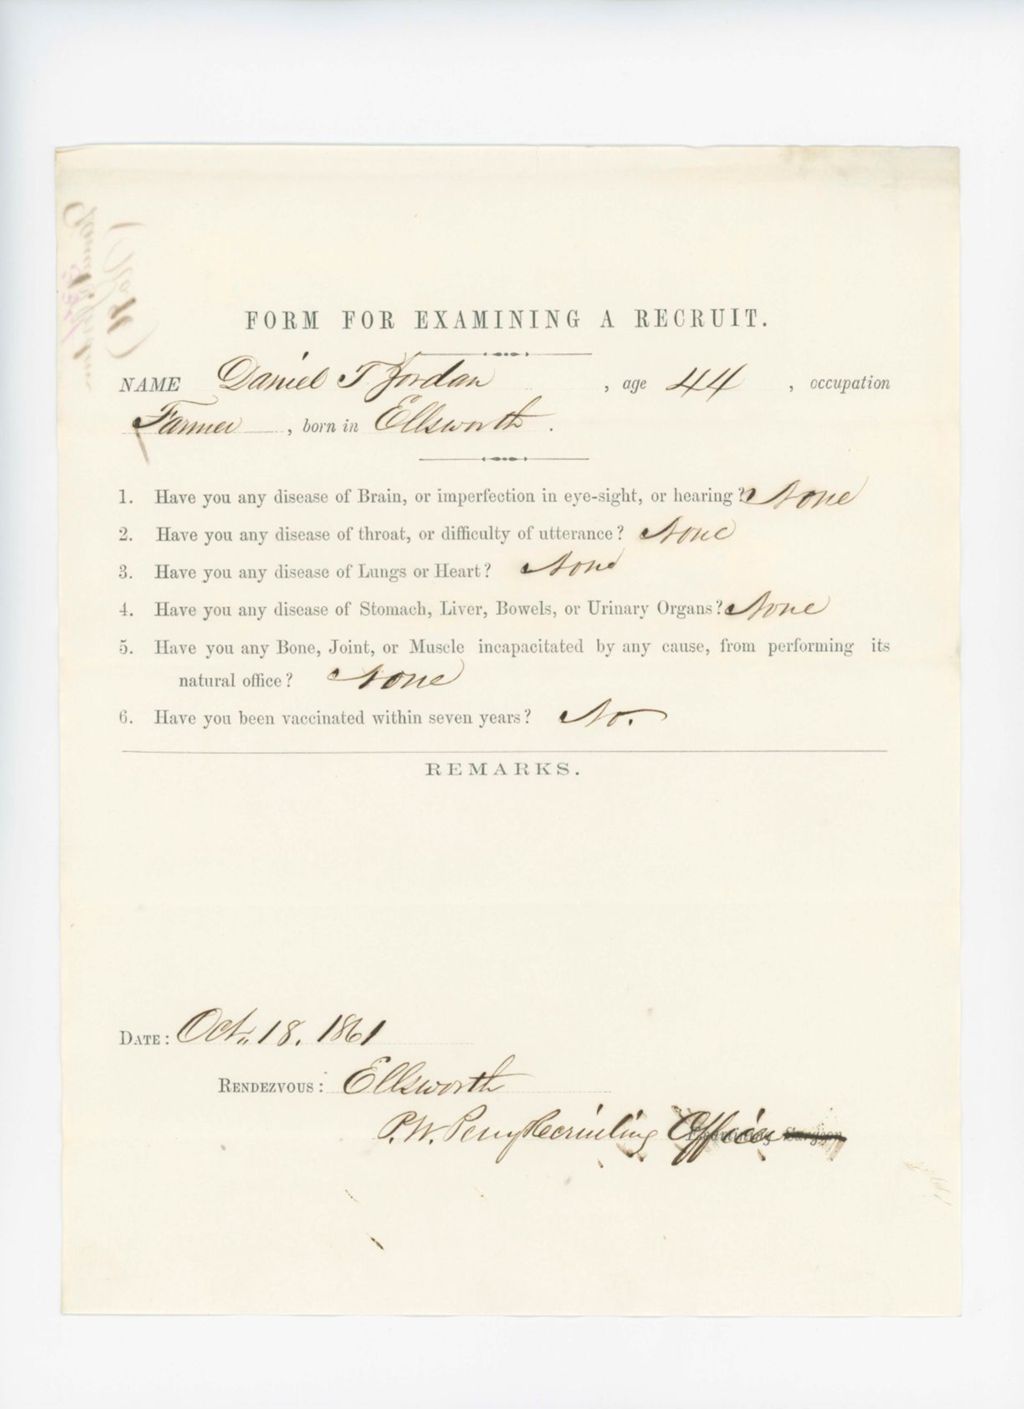 FORM FOR EXAMINING A RECRUIT.
NAME Daniel T Jordan, age 44, occupation
Farmer, born in Ellsworth.
1. Have you any disease of Brain, or imperfection in eye-sight, or hearing? None
2. Have you any disease of throat, or difficulty of utterance? None
3. Have you any disease of Lungs or Heart? None
4. Have you any disease of Stomach, Liver, Bowels, or Urinary Organs? None
5. Have you any Bone, Joint, or Muscle incapacitated by any cause, from performing its
natural office? None
6. Have you been vaccinated within seven years? No.
REMARKS.
DATE: Oct. 18. 1861
RENDEZVOUS: Ellsworth
P.W. Perry Recruiting Officer